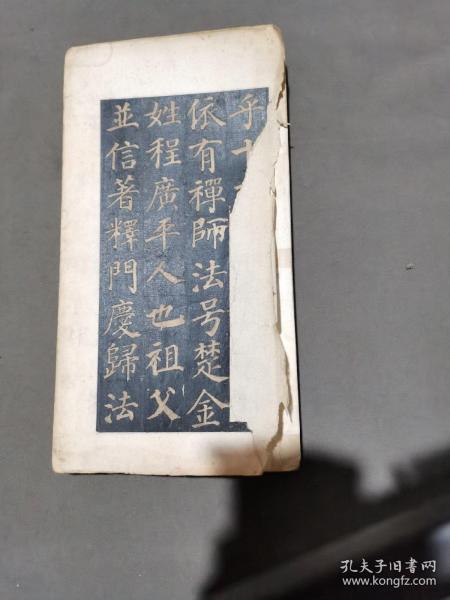 乎十
依有禪師法号楚金
姓程廣平人也祖父
並信著釋門慶歸法
孔夫子旧书网
www.kongfz.com